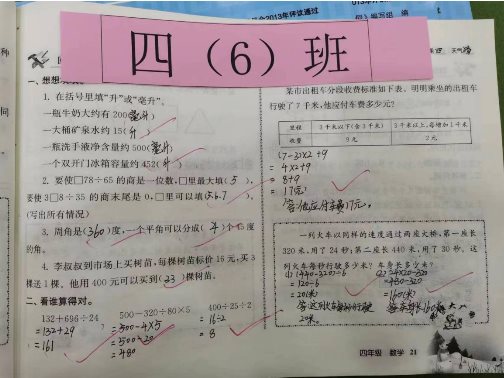 四（6）班
2013年评议通过
一、想想
1. 在括号里填“升”或“毫升”。
一瓶牛奶大约有200(毫升)
一大桶矿泉水约15(升)
一瓶洗手液净含量约500(毫升)
一个双开门冰箱容量约452(升)
2. 要使□78÷65的商是一位数，□里最大填(5)，
要使3□8÷35的商末尾是0，□里可以填(5.6.7)。
(写出所有情况)
3. 周角是(360)度，一个平角可以分成(4)个
的角。
4. 李叔叔到市场上买树苗，每棵树苗标价16元，买3
棵送1棵，他用400元可以买到(33)棵树苗。
二、看谁算得对。
132+696÷24 500-320÷80×5 400÷25÷2
=132+29 =500-4×5 =16÷2
=161 =500-20 =8
=480
某市出租车分段收费标准如下表，明明乘坐的出租车
行驶了7千米，他应付车费多少元？
里程 3千米以下(含3千米) 3千米以上，每增加1千米
收费 9元 2元
(7-3)×2+9
=4×2+9
=8+9
=17(元)
答：他应付车费17元。
一列火车以同样的速度通过两座大桥，第一座长
320米，用了24秒；第二座长440米，用了30秒，这
列火车每秒行驶多少米？车身长多少米？
=120÷6 =480-320
=20(米) =160(米)
四年级 数学 21